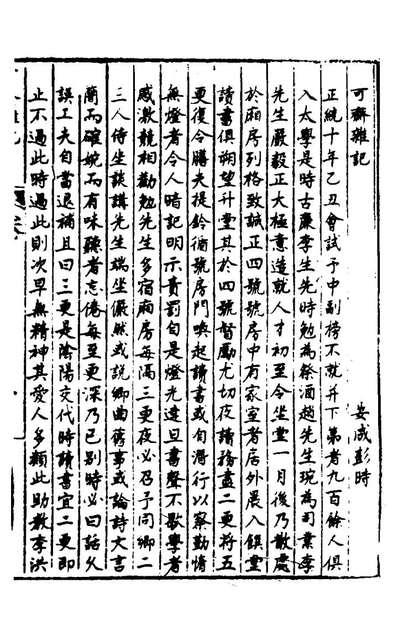 可齋雜記
安成彭時
正統十年乙丑會試予中副榜不就并下第者九百餘人俱
入太學是時古廉李先生時勉為祭酒趙先生琬為司業李
先生嚴毅正大極意造就人才初至令坐堂一月後乃散處
於廂房列格致誠正四號號房中有家室者居外晨入饌堂
讀書俱朔望升堂其於四號督勵尤切夜讀務盡二更將五
更復令膳夫提鈴循號房門喚起讀書或自潛行以察勤惰
無燈者令人暗記明示責罰自是燈光達旦書聲不歇學者
感激競相勸勉先生多宿廂房每隔三更夜必召予同鄉二
三人侍坐談講先生端坐儼然或說鄉曲舊事或論詩文言
簡而確婉而有味聽者忘倦每至更深乃已別時必曰話久
誤工夫自當退補且曰三更是陰陽交代時讀書宜二更即
止不過此時過此則次早無精神其愛人多類此助教李洪